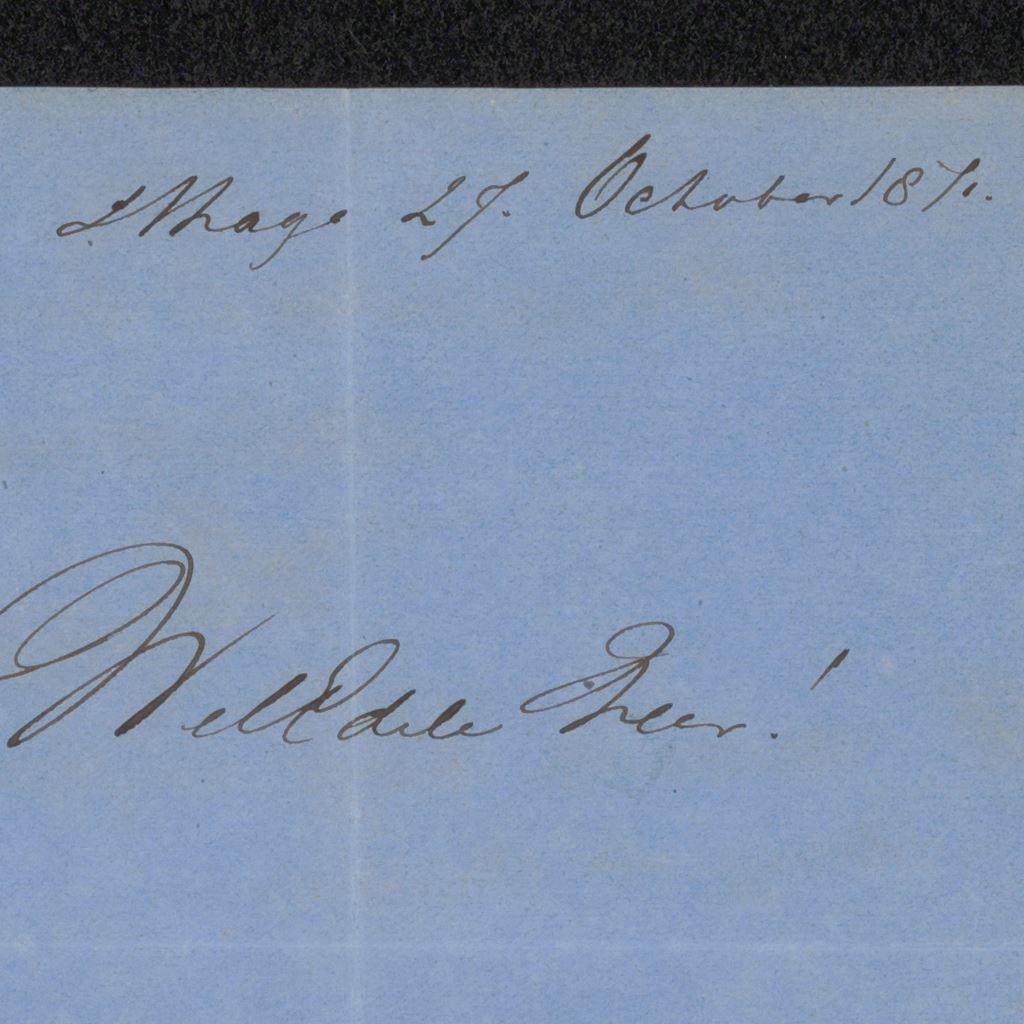 s'Hage 27. October 1871.
WelEdele Heer!